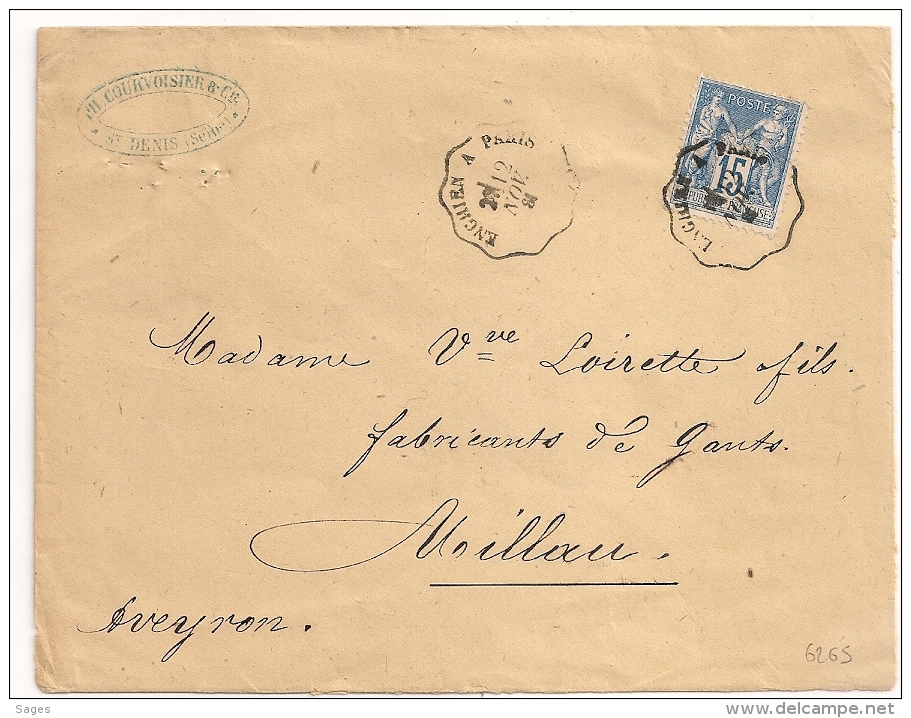 PH. COURVOISIER & Cie
* St DENIS (Seine) *
ENGHIEN A PARIS
12
NOV.
POSTE
15
Madame Vve Loirette fils.
fabricants de Gants.
Millau.
Aveyron.
6265
Sages
www.delcampe.net